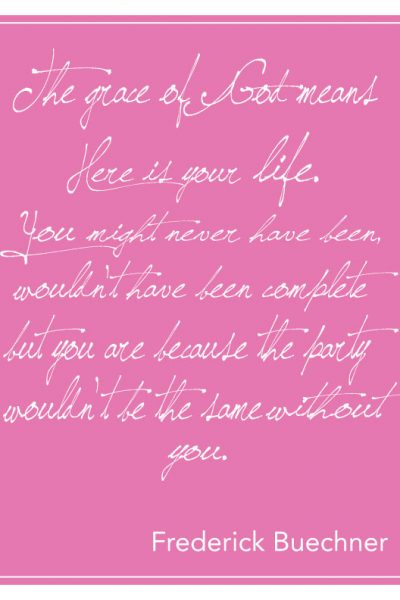 The grace of God means
Here is your life.
You might never have been,
wouldn't have been complete
but you are because the party
wouldn't be the same without
you.
Frederick Buechner